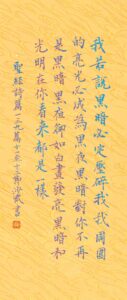 我若說黑暗必定壓碎我我周圍
的亮光必成為黑夜黑暗對你不再
是黑暗黑夜卻如白晝發亮黑暗和
光明在你看來都是一樣
聖經詩篇一三九篇十一至十二節 書